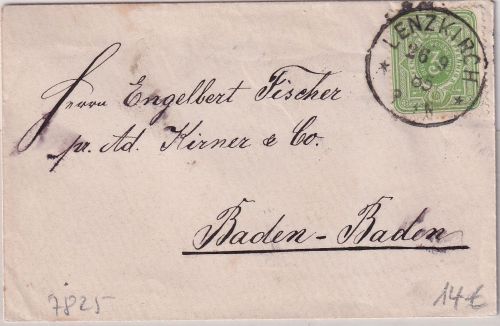 LENZKIRCH
26 9
Herrn Engelbert Fischer
pr. Ad. Kirner & Co.
Baden-Baden
7825
14€